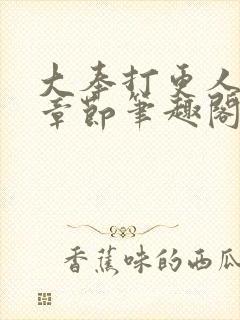 大奉打更人
章節筆趣閣
香蕉味的西瓜